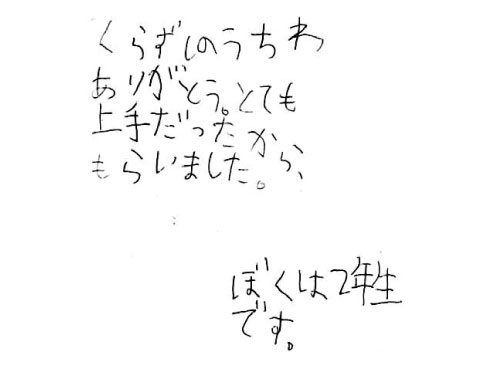 くらずしのうちわ
ありがとう。とても
上手だったから、
もらいました。
ぼくは2年生
です。